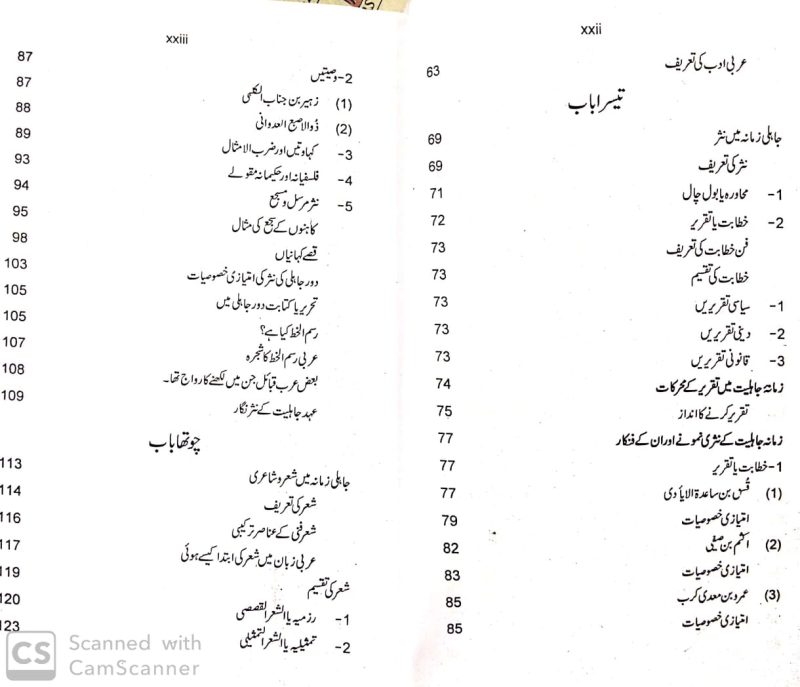 xxii
عربی ادب کی تعریف 63
تیسرا باب
جاہلی زمانہ میں نثر 69
نثر کی تعریف 69
1- محاورہ یا بول چال 71
2- خطابت یا تقریر 72
فن خطابت کی تعریف 73
خطابت کی تقسیم 73
1- سیاسی تقریریں 73
2- دینی تقریریں 73
3- قانونی تقریریں 73
زمانہ جاہلیت میں تقریر کے محرکات 74
تقریر کرنے کا انداز 75
زمانہ جاہلیت کے نثری نمونے اور ان کے فنکار 77
1- خطابت یا تقریر 77
(1) قُس بن ساعدۃ الایادی 77
امتیازی خصوصیات 79
(2) اکثم بن صفی 82
امتیازی خصوصیات 83
(3) عمرو بن معدی کرب 85
امتیازی خصوصیات 85
xxiii
2- وصیتیں 87
(1) زہیر بن جناب الکلبی 87
(2) ذوالاصبع العدوانی 88
3- کہاوتیں اور ضرب الامثال 89
4- فلسفیانہ اور حکیمانہ مقولے 93
5- نثر مرسل و مسجع 94
کاہنوں کے سجع کی مثال 95
قصے کہانیاں 98
دور جاہلی کی نثر کی امتیازی خصوصیات 103
تحریر یا کتابت دور جاہلی میں 105
رسم الخط کیا ہے؟ 105
عربی رسم الخط کا شجرہ 107
بعض عرب قبائل جن میں لکھنے کا رواج تھا۔ 108
عہد جاہلیت کے نثر نگار 109
چوتھا باب
جاہلی زمانہ میں شعر و شاعری 113
شعر کی تعریف 114
شعر فنی کے عناصر ترکیبی 116
عربی زبان میں شعر کی ابتدا کیسے ہوئی 117
شعر کی تقسیم 119
1- رزمیہ یا الشعر القصصی 120
2- تمثیلیہ یا الشعر التمثیلی 123
CS Scanned with
CamScanner